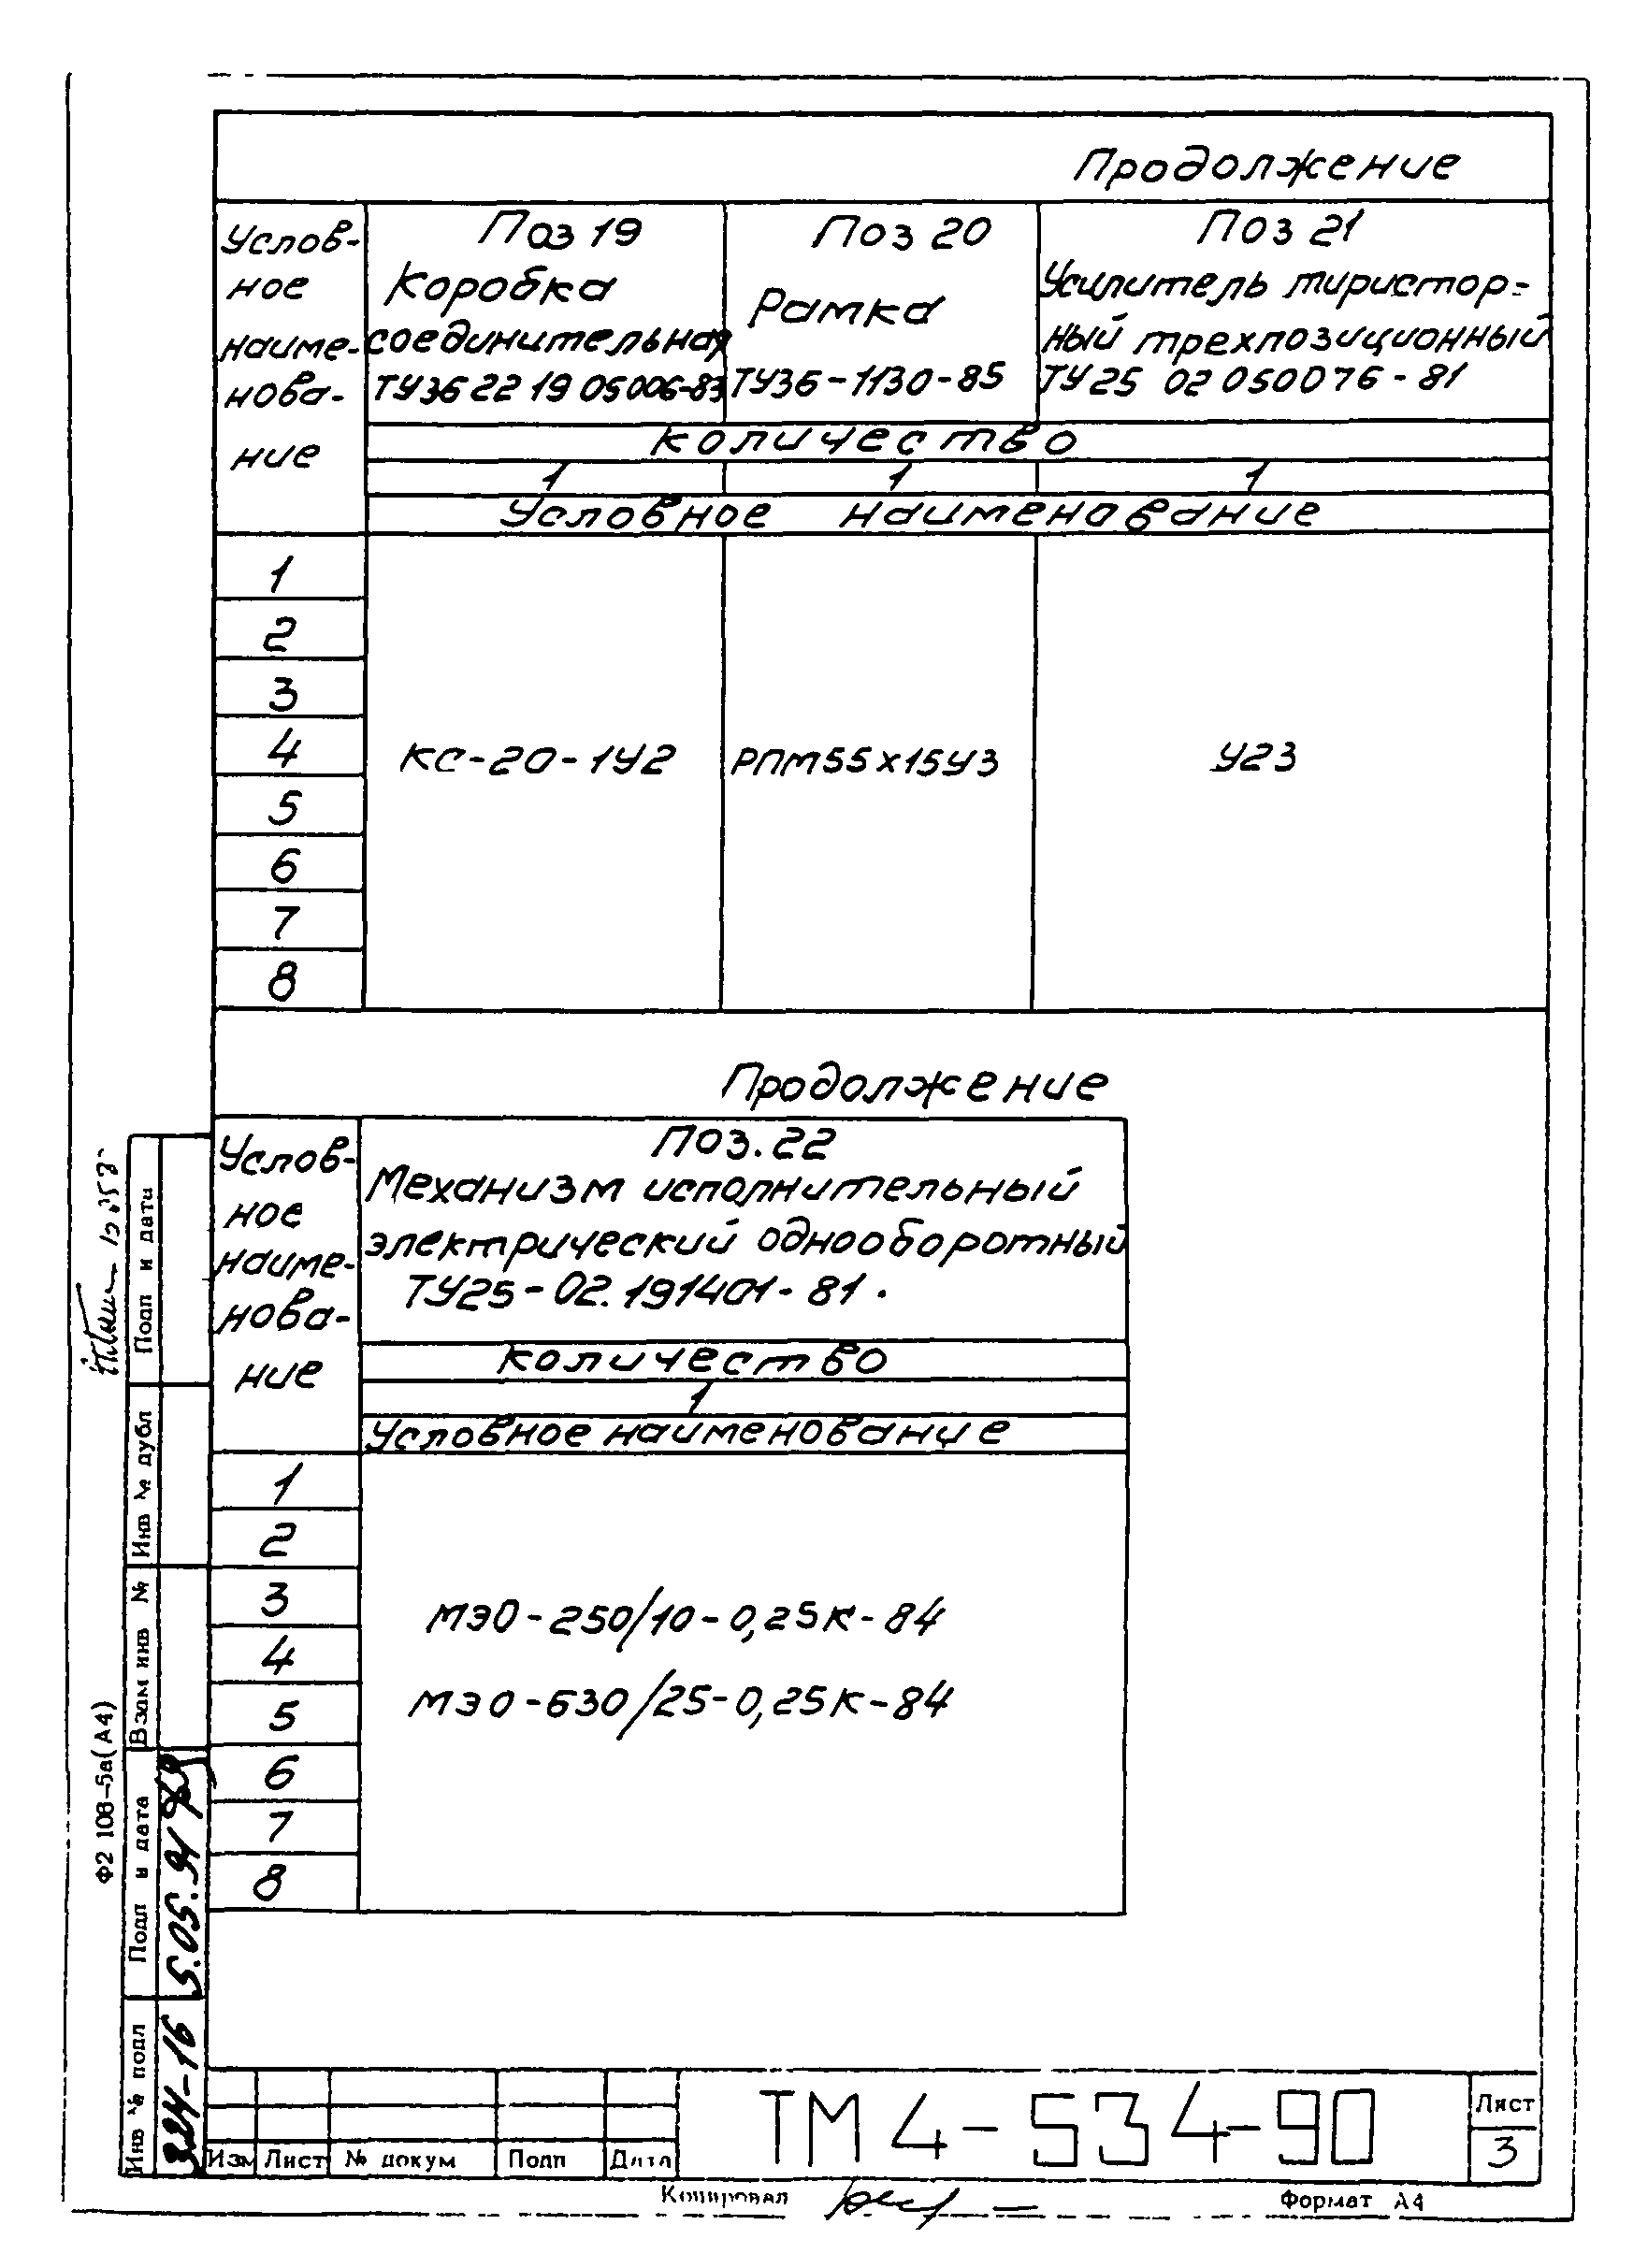 Продолжение
Услов-
ное
наиме-
нова-
ние
Поз 19
Коробка
соединительная
ТУ36 22 19 05006-83
Поз 20
Рамка
ТУ36-1130-85
Поз 21
Усилитель тиристор-
ный трехпозиционный
ТУ25 02 050076-81
количество
1 1 1
Условное наименование
1
2
3
4 КС-20-1У2 РПМ55х15У3 У23
5
6
7
8
Продолжение
Услов-
ное
наиме-
нова-
ние
Поз.22
Механизм исполнительный
электрический однооборотный
ТУ25-02.191401-81.
количество
1
Условное наименование
1
2
3
МЭО-250/10-0,25К-84
4
5 МЭО-630/25-0,25К-84
6
7
8
Подп и дата
Инв № дубл
Взам инв №
Подп и дата
5.05.91
Инв № подл
Ф2 108-5а(А4)
Изм Лист № докум Подп Дата
ТМ4-534-90
Лист
3
Копировал
Формат А4